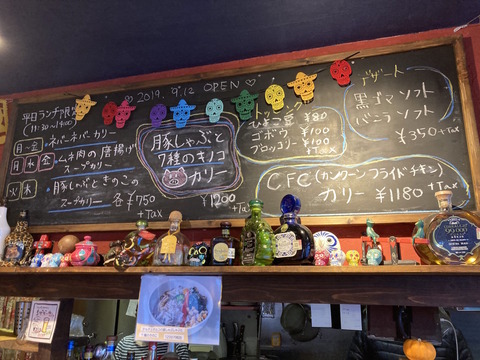 ♡ 2019. 9.12 OPEN ♡
平日ランチ限定
(11:30~14:00)
月~金 ネバーネバーカリー
月水金 ムネ肉の唐揚げ
スープカリー
火木 豚しゃぶときのこの
スープカリー 各¥750
+Tax
豚しゃぶと
7種のキノコ
カリー
¥1200
+Tax
トッピング
ひよこ豆 ¥80
ゴボウ ¥100
ブロッコリー ¥100
+Tax
デザート
黒ゴマソフト
バニラソフト
¥350+Tax
CFC(カンクーンフライドチキン)
カリー ¥1180 +Tax